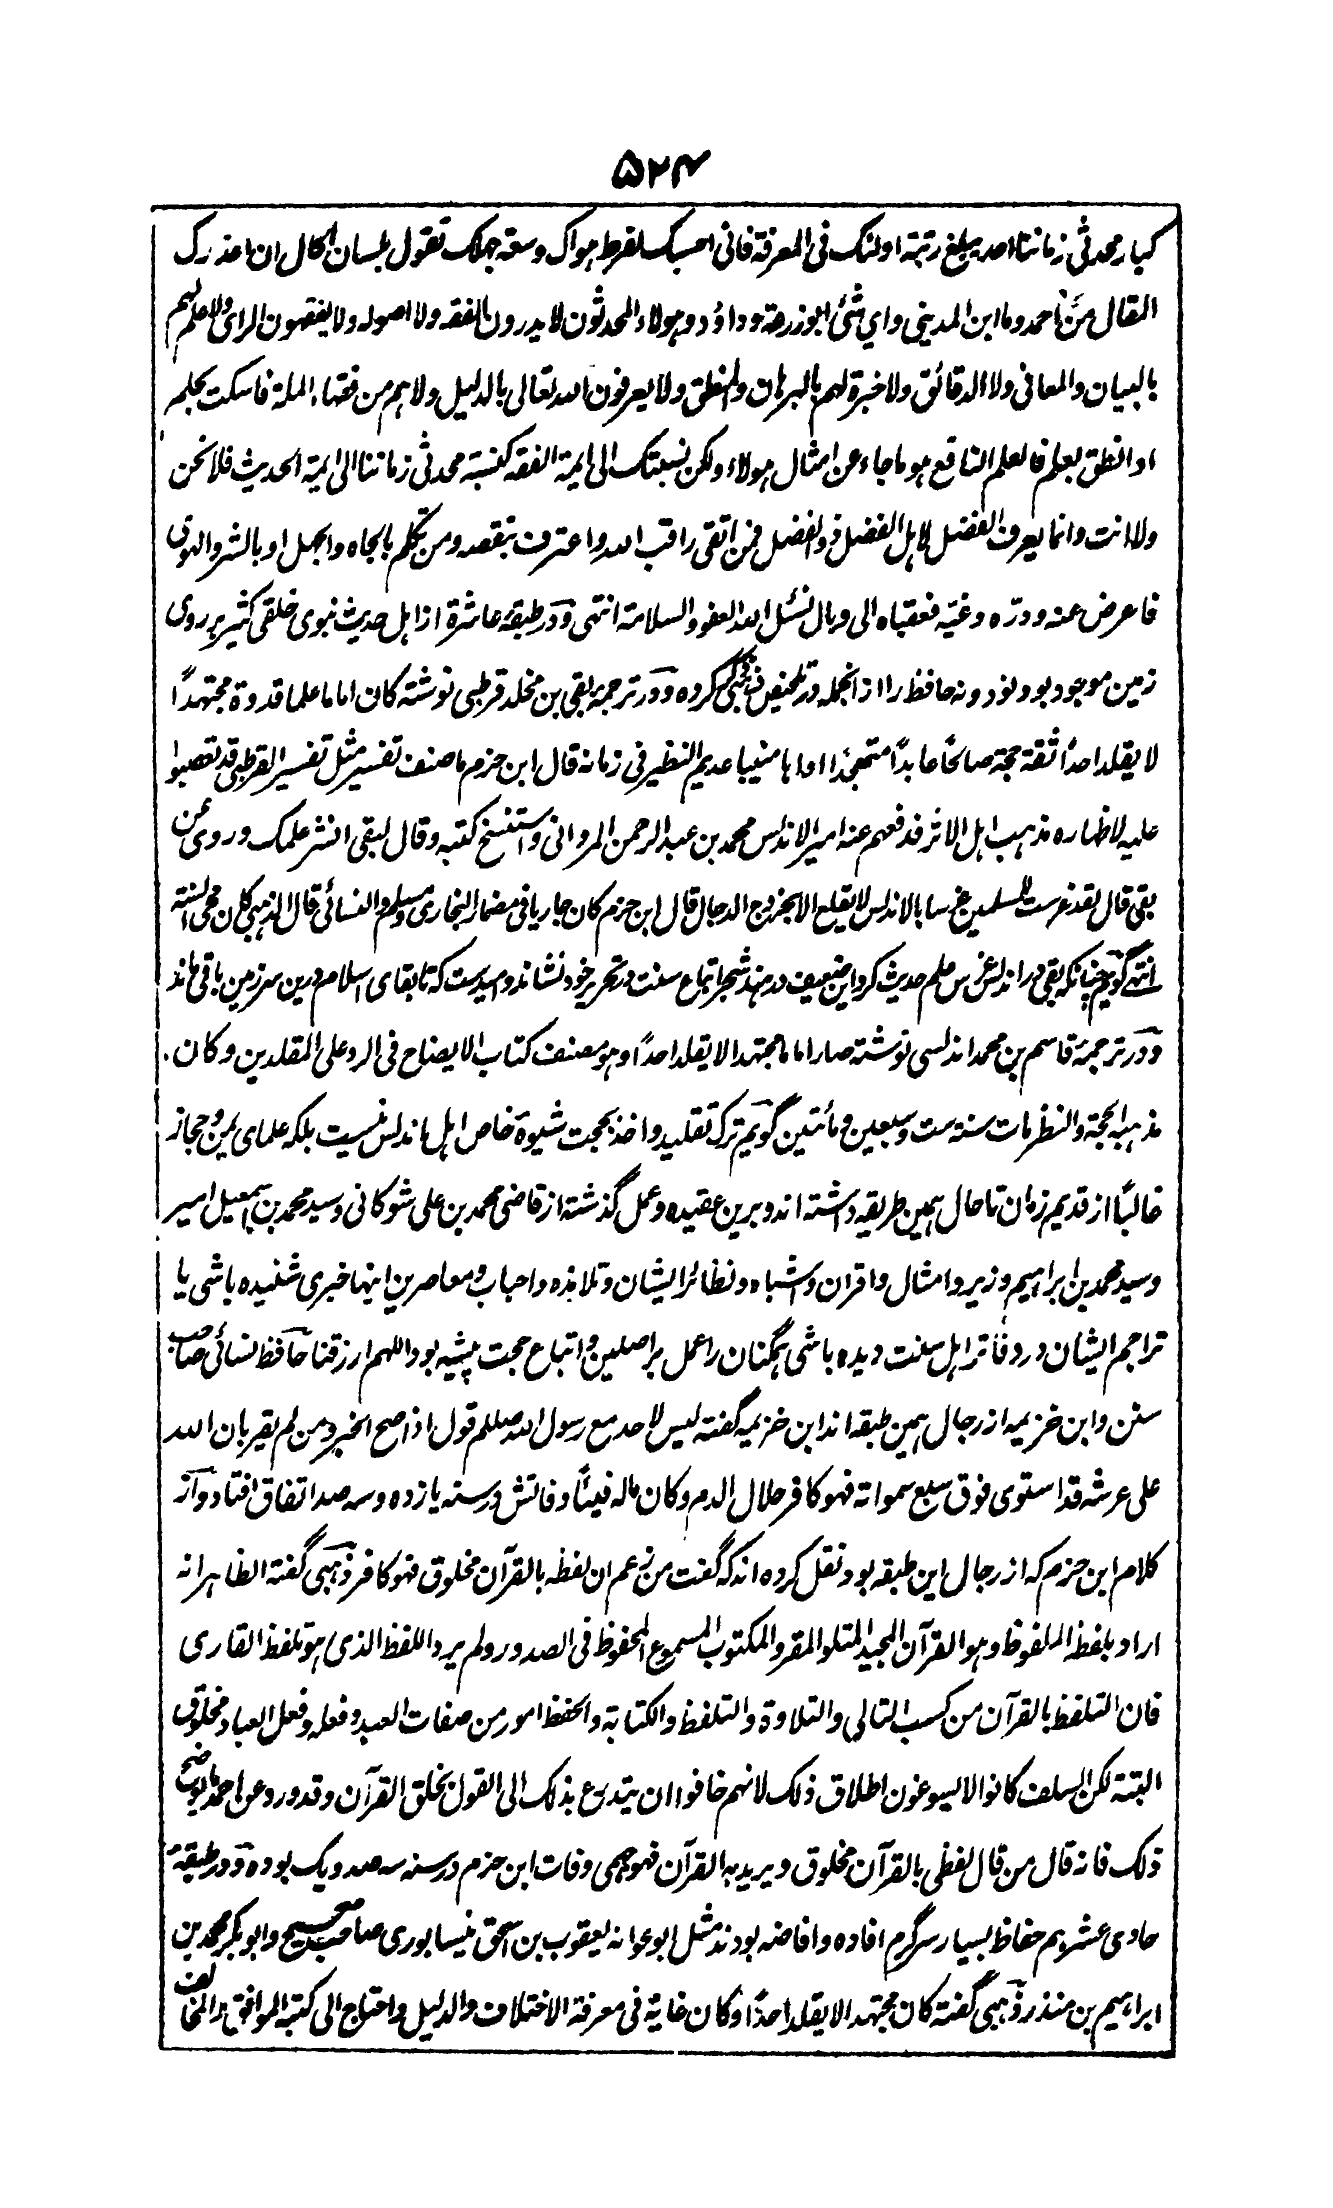 ۵۲۴
کبار محدثی زماننا احد یبلغ رتبة اولئک فی المعرفة فانی احسبک لفرط هواک وسعة جهلک تقول بلسان الحال ان اعذرک
المقال من احمد وما ابن المدینی وای شئ ابو زرعة وداؤد وهؤلاء المحدثون لا یدرون بالفقه ولا اصوله ولا یفقهون الرای ولا علم لهم
بالبیان والمعانی ولا الدقائق ولا خبرة لهم بالبرهان والمنطق ولا یعرفون الله تعالی بالدلیل ولا هم من فقهاء الملة فاسکت بحلم
او انطق بعلم فالعلم النافع هو ما جاء عن امثال هولاء ولکن نسبتک الی ایمة الفقه کنسبة محدثی زماننا الی ایمة الحدیث فلا نحن
ولا انت وانما یعرف الفضل لاهل الفضل ذو الفضل فمن اتقی راقب الله واعترف بنقصه ومن تکلم بالجاه والجهل او بالشر والهوی
فاعرض عنه وذره وغیه فعقباه الی وبال نسئل الله العفو والسلامة انتهی ودر طبقۀ عاشرة از اهل حدیث نبوی خلقی کثیر بر روی
زمین موجود بود نود و نه حافظ را از انجمله در تلخیص ذهبی ذکر کرده ودر ترجمۀ بقی بن مخلد قرطبی نوشته کان اماما علما قدوة مجتهدًا
لا یقلد احدًا ثقة حجة صالحًا عابدًا متهجدًا اواها منیبا عدیم النظیر فی زمانه قال ابن حزم ما صنف تفسیر مثل تفسیر القرطبی قد تعصبوا
علیه لاظهاره مذهب اهل الاثر فدفعهم عنه امیر الاندلس محمد بن عبد الرحمن المروانی واستنسخ کتبه وقال لبقی انشر علمک وروی عن
بقی قال لقد غرست للمسلمین غرسا بالاندلس لا یقلع الا بخروج الدجال قال ابن حزم کان جاریا فی مضمار البخاری ومسلم والنسائی قال الذهبی کان محی السنة
انتهی گویم چنانکه بقی در اندلس غرس علم حدیث کرد این ضعیف در هند شجر اتباع سنت در تحریر خود نشانده امیدست که تا بقای اسلام درین سرزمین باقی ماند
ودر ترجمۀ قاسم بن محمد اندلسی نوشته صار اماما مجتهدا لا یقلد احدًا وهو مصنف کتاب الایضاح فی الرد علی المقلدین وکان
مذهبه الحجة والنظر مات سنه ست وسبعین ومأتین گویم ترک تقلید واخذ بحجت شیوۀ خاص اهل اندلس نیست بلکه علمای یمن وحجاز
غالبًا از قدیم زمان تا حال همین طریقه داشته اند وبرین عقیده وعمل گذشته از قاضی محمد بن علی شوکانی وسید محمد بن اسمعیل امیر
وسید محمد بن ابراهیم وزیر وامثال واقران واشباه ونظائر ایشان وتلامذه واحباب ومعاصرین اینها خبری شنیده باشی یا
تراجم ایشان در دفاتر اهل سنت دیده باشی همگنان را عمل بر اصلین واتباع حجت پیشه بود اللهم ارزقنا حافظ نسائی صاحب
سنن وابن خزیمه از رجال همین طبقه اند ابن خزیمه گفته لیس لاحد مع رسول الله صللم قول اذا صح الخبر ومن لم یقر بان الله
علی عرشه قد استوی فوق سبع سمواته فهو کافر حلال الدم وکان ماله فیئًا وفاتش در سنه یازده وسه صد اتفاق افتاد واز
کلام ابن حزم که از رجال این طبقه بود نقل کرده اند که گفت من زعم ان لفظه بالقرآن مخلوق فهو کافر ذهبی گفته الظاهر انه
اراد بلفظه الملفوظ وهو القرآن المجید المتلو المقرو المکتوب المسموع المحفوظ فی الصدور ولم یرد اللفظ الذی هو تلفظ القاری
فان التلفظ بالقرآن من کسب التالی والتلاوة والتلفظ والکتابة والحفظ امور من صفات العبد وفعله وفعل العباد مخلوق
البتة لکن السلف کانوا لا یسوغون اطلاق ذلک لانهم خافوا ان یتدرع بذلک الی القول بخلق القرآن وقد ورد عن احمد ما یوضح
ذلک فانه قال من قال لفظی بالقرآن مخلوق ویرید به القرآن فهو جهمی وفات ابن حزم در سنه سه صد ویک بوده ودر طبقۀ
حادی عشر هم حفاظ بسیار سرگرم افاده وافاضه بودند مثل ابو عوانه یعقوب بن اسحق نیسابوری صاحب صحیح وابو بکر محمد بن
ابراهیم بن منذر ذهبی گفته کان مجتهدا لا یقلد احدًا وکان غایة فی معرفة الاختلاف والدلیل واحتاج الی کتبه الموافق والمخالف